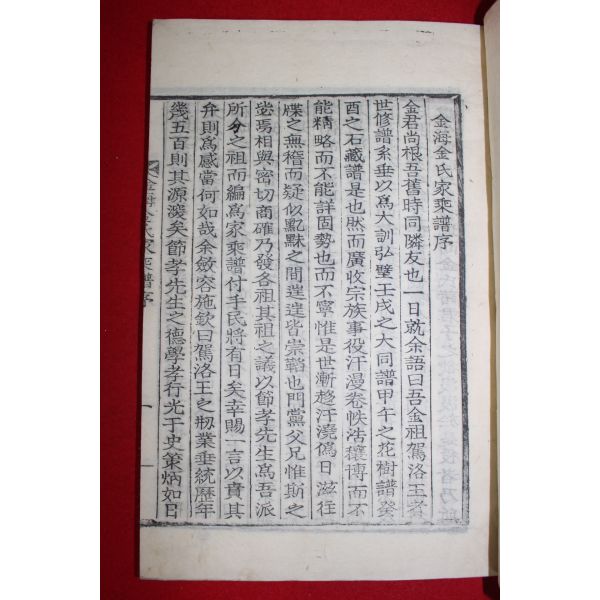 金海金氏家乘譜序
金君尚根吾舊時同隣友也一日就余語曰吾金祖駕洛王若
世修譜系垂以爲大訓弘璧壬戌之大同譜甲午之花樹譜癸
酉之石藏譜是也然而廣收宗族事役汗漫卷帙浩穰博而不
能精略而不能詳固勢也而不寧惟是世漸趍汗澆僞日滋往
牒之無稽而疑似黯黮之間遑遑皆崇韜也門黨父兄惟斯之
焉相與密切商確乃發各祖其祖之議以節孝先生爲吾派
所分之祖而編爲家乘譜付手民將有日矣幸賜一言以賁其
弁則爲感當何如哉余斂容施欽曰駕洛王之刱業垂統歷年
幾五百則其源濬矣節孝先生之德學孝行光于史策炳如日
金海金氏家乘譜序
一